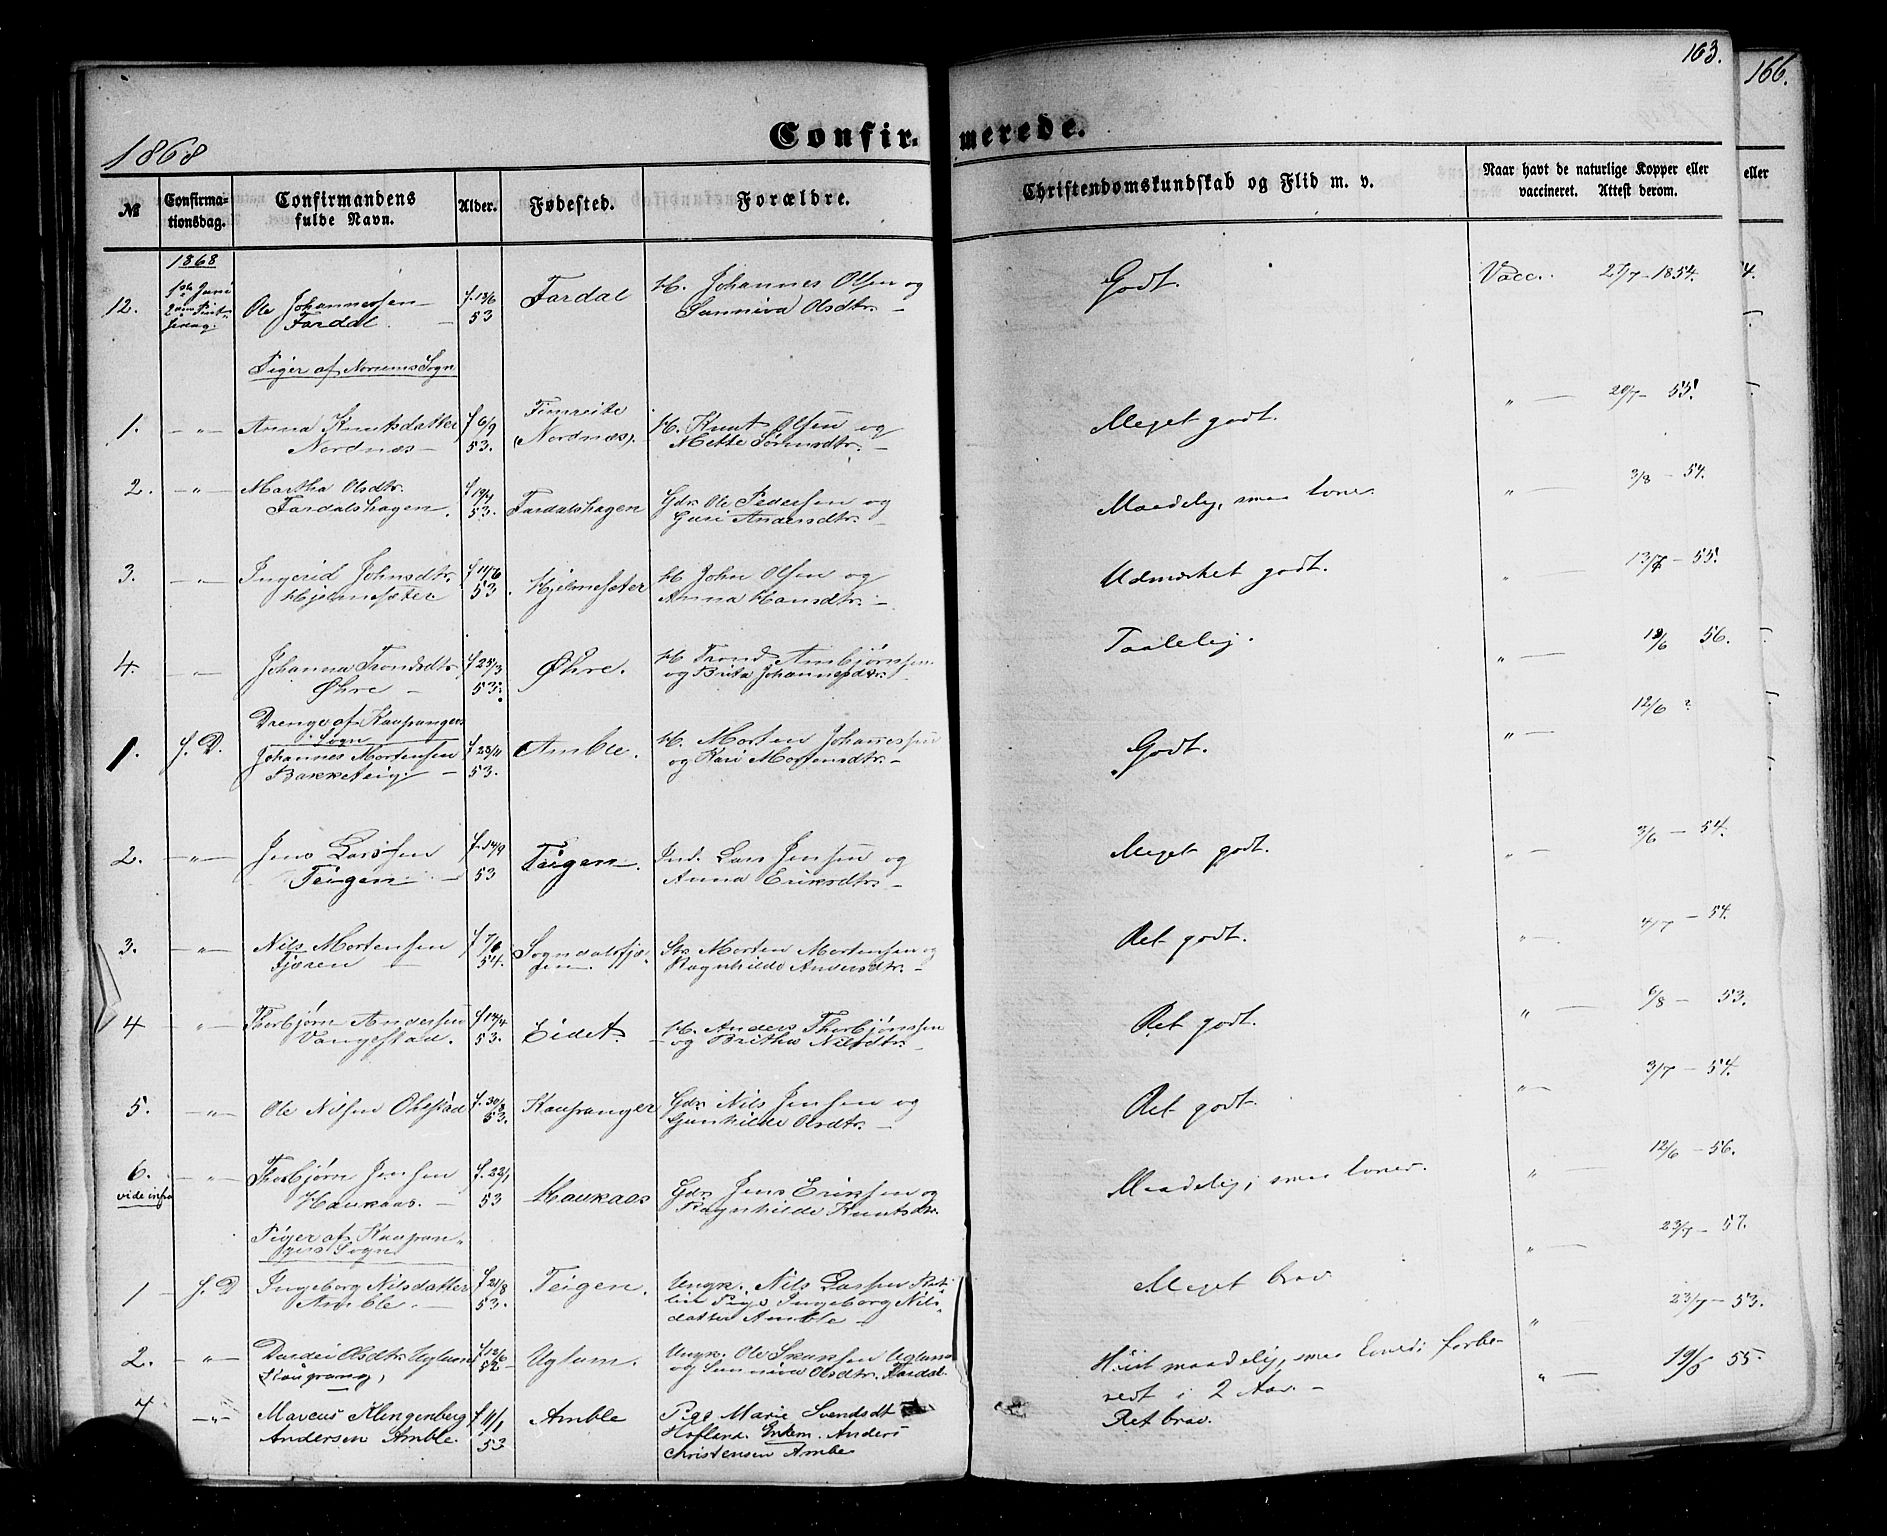 163.
166.
1868
Confirmerede.
№
Confirmationsdag.
Confirmandens fulde Navn.
Alder.
Fødested.
Forældre.
Christendomskundskab og Flid m. v.
Naar havt de naturlige Kopper eller vaccineret. Attest derom.
eller
1868
12. Ole Johannessen f. 13/6 Fardal H. Johannes Olsen og Godt. Vacc. 27/7 - 1854.
Fardal. 53 Sunniva Olsdtr. -
Piger af Norums Sogn
1. - " - Anna Knutsdatter f 6/9 Fimreite H. Knut Olsen og Meget godt. " - 20/7 - 55.
Nordnæs 53. (Nordnæs). Mette Sørensdtr. -
2. - " - Martha Olsdtr. f 19/4 Fardalshagen Gdr. Ole Pedersen og Maadelig, smaa Evner. " - 3/8 - 54.
Fardalshagen. 53. Guri Andersdtr. -
3. - " - Ingerid Johnsdtr. f 11/6 Hjelmesæter H John Olsen og Udmærket godt. " - 13/7 - 55.
Hjelmesæter 53. Anna Hansdtr. -
4. - " - Johanna Trondsdtr. f 25/3 Øhre. H Trond Ambjørnsen Taalelig. " - 18/6 56.
Øhre - 53. og Brita Johannesdtr. -
Drenge af Kaupanger
Sogn
1. f. D. Johannes Mortensen f 23/11 Amble. H. Morten Johannessen Godt. " - 12/6 ?
Bakketeig - 53. og Kari Mortensdtr. -
2. - " - Jens Larssen f. 14/9 Teigen. Ind. Lars Jensen og Meget godt. " - 3/6 - 54.
Teigen - 53 Anna Eriksdtr. -
3. - " - Nils Mortensen Sogndalsfjæ- Str. Morten Mortensen og Ret godt. " - 4/7 - 54.
Fjæren - 54. Ragnhilde Andersdtr. -
4 - " - Thorbjørn Andersen f 14/4 Eidet. H. Anders Thorbjørnsen Ret godt. " - 6/8 - 53.
Vangestad. 53. og Britha Nilsdtr. -
5. - " - Ole Nilsen Olestad f. 30/8 Kaupanger Gdr. Nils Jensen og Ret godt. " - 3/7 - 54.
53. Gunhilde Olsdtr. -
6. - " - Thorbjørn Jensen f. 22/1 Haukaas Gdr. Jens Eriksen og Maadelig, smaa Evner. " 12/6 - 56.
vide infra Haukaas. - 53 Ragnhilde Knutsdtr.
Piger af Kaupan-
gers Sogn
1 - f. D Ingeborg Nilsdatter f. 21/8 Teigen. Ungk. Nils Larsen Meget brav " - 23/7 - 57.
Amble. - 53. Pige Ingeborg Nils-
datter Amble -
2. - " - Dordei Olsdtr. Uglum f 12/6 Uglum. Ungk. Ole Uglum Maadelig, smaa Evner; forbe- " 23/7 - 53.
Kaupang, 52 og Sunniva Olsdtr. Fardal. redt i 2 Aar. - " - 19/5 55.
7 - " - Marcus Klingenberg f 11/1 Amble Pige Marie Svendsdt Ret brav.
Andersen Amble. 53 Hofland. Enkem. Anders
Christensen Amble